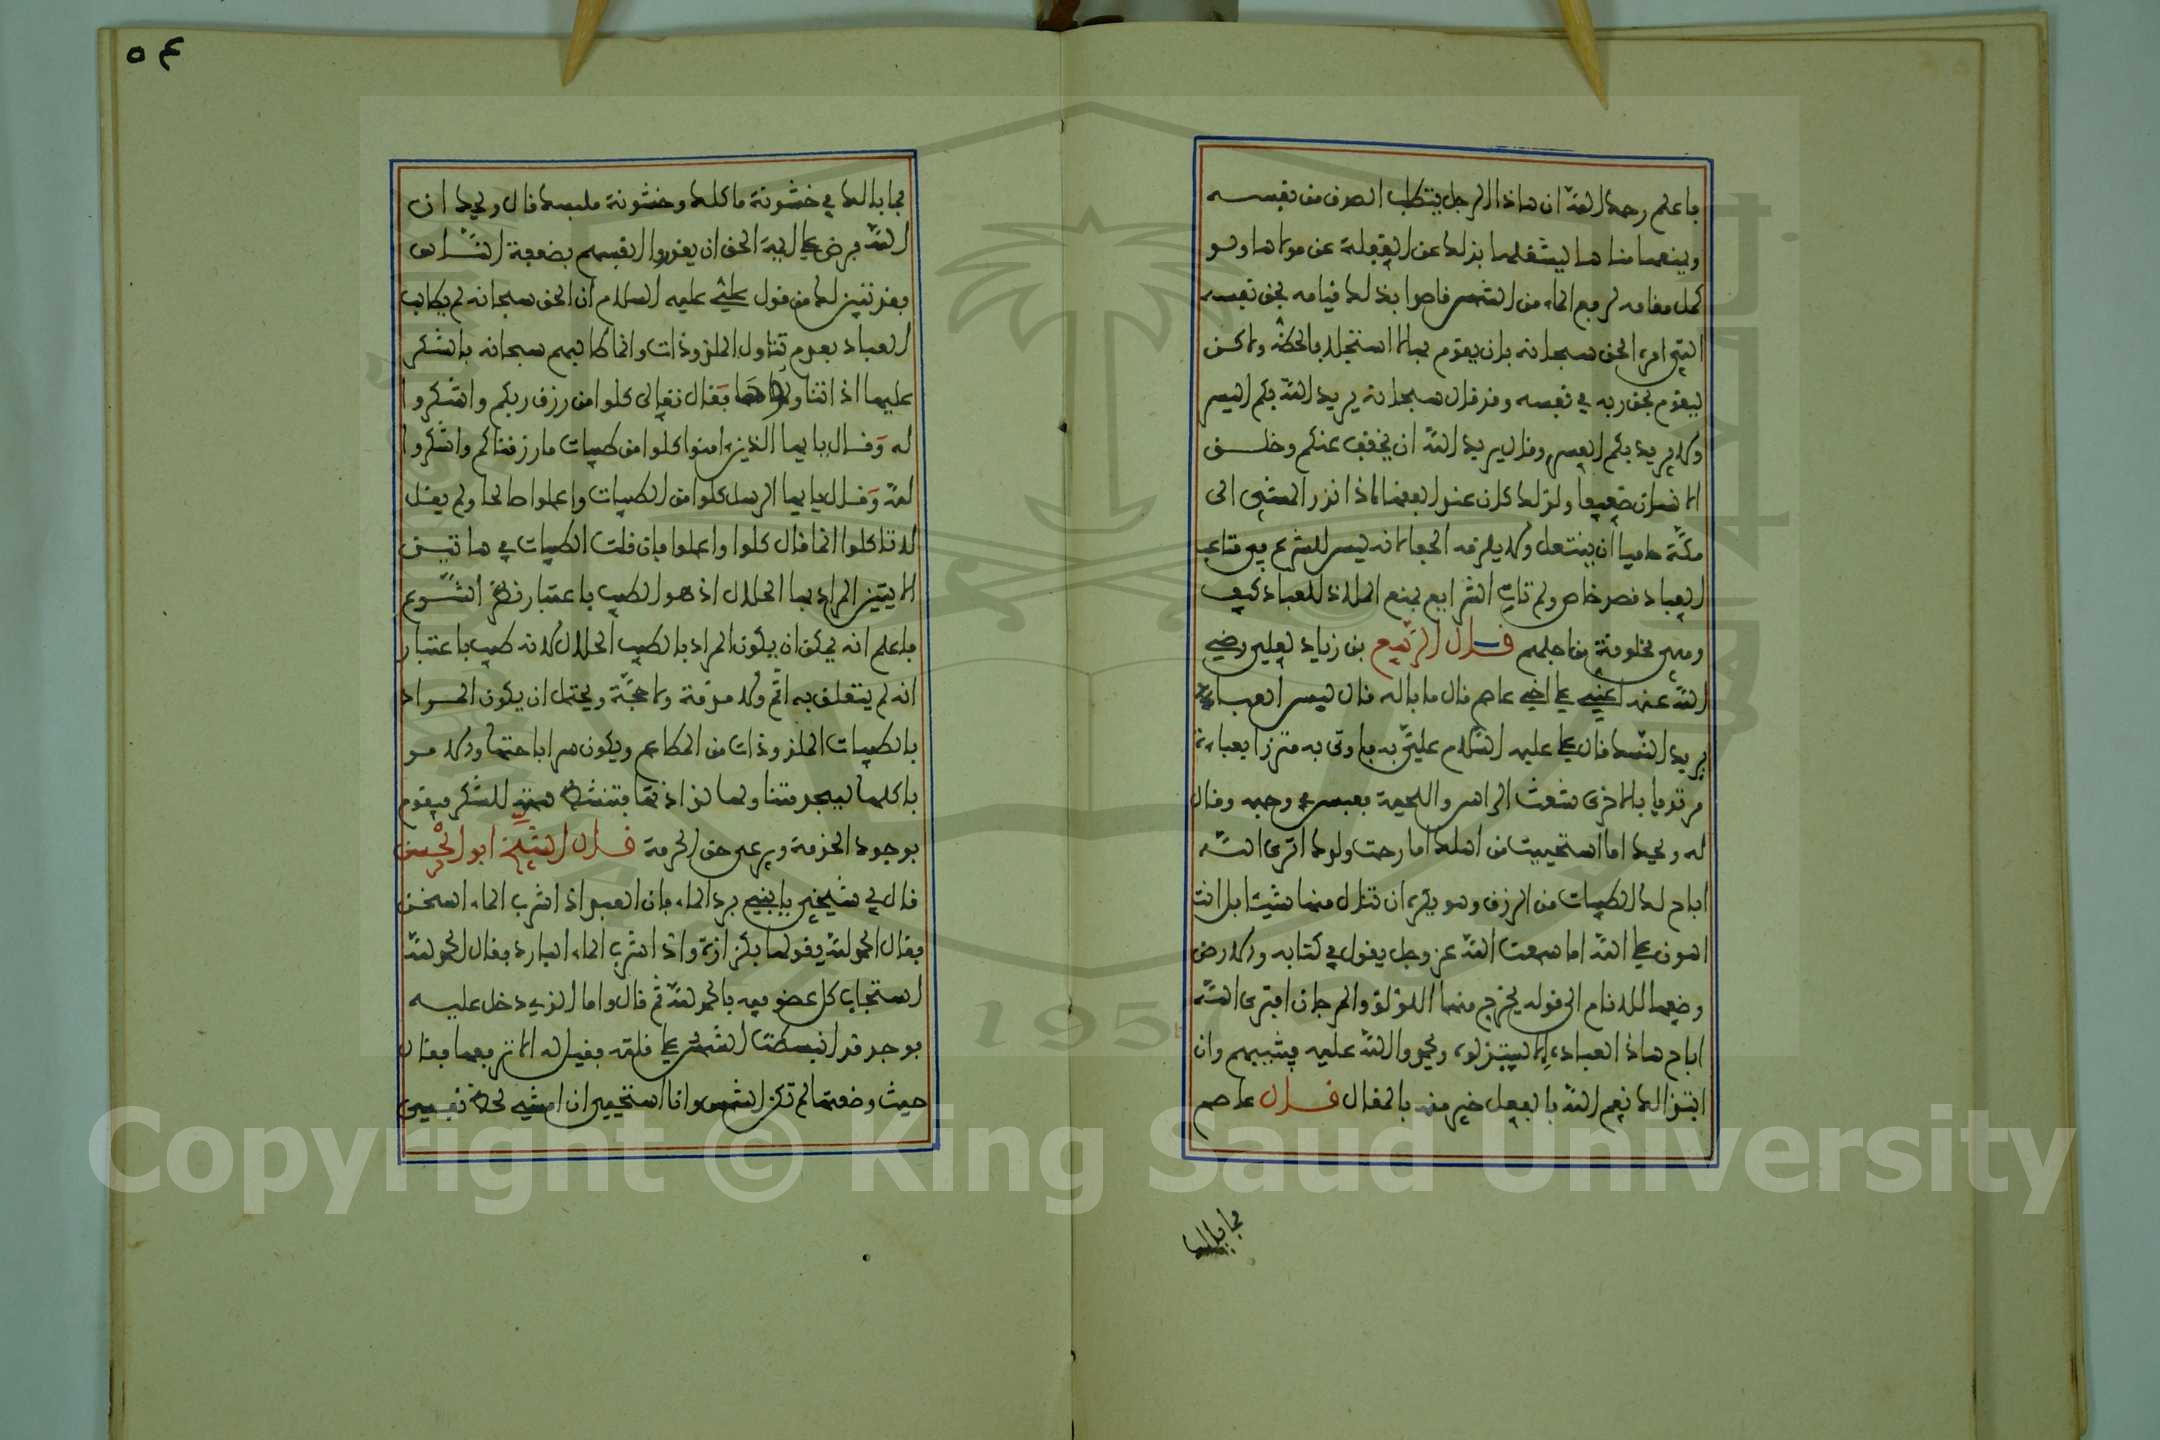 فاعلم رحمك الله ان هاذا الرجل يتطلب الصدق من نفسه
ويمنعها مناها ليشغلها بذلك عن الغفلة عن مولاها ولو
كمل مقامه لرفع الماء من الشمس قاصدا بذلك قيامه بحق نفسه
التي امره الحق سبحانه بان يقوم بها لا استجلابا لحظه ولاكن
ليقوم بحق ربه في نفسه وقد قال سبحانه يريد الله بكم اليسر
ولا يريد بكم العسر وقال يريد الله ان يخفف عنكم وخلق
الانسان ضعيفا ولذلك كان عند الفقهاء اذا نذر المشي الى
مكّة حافيا ان ينتعل ولا يلزمه الحفا لانه ليس للشرع في متاعب
العباد قصد خاص ولم تات الشرائع بمنع الملاذ للعباد كيف
وهي مخلوقة من اجلهم قال الربيع بن زياد لعلي رضي
الله عنه اعني على اخي عاصم قال ما باله قال لبس العباءة
يريد النسك قال علي عليه السّلام عليّ به فاوتي به متزرا بعباءة
مرتديا بالاخرى شعث الراس واللحية فعبس في وجهه وقال
له ويحك اما استحييت من اهلك اما رحمت ولدك اترى الله
اباح لك الطيبات من الرزق وهو يكره ان تنال منها شيئا بل انت
اهون على الله اما سمعت الله عز وجل يقول في كتابه والارض
وضعها للانام الى قوله يخرج منهما اللؤلؤ والمرجان افترى الله
اباح هاذا لعباده الا ليبتذلوه ويحمدوا الله عليه فيثيبهم وان
ابتذالك نعم الله بالفعل خير منه بالمقال قال عاصم
فما بالك
فما بالك في خشونة ماكلك وخشونة ملبسك قال ويحك ان
الله فرض على ايمة الحق ان يقدروا انفسهم بضعفة النّاس
فقد تبين لك من قول علي عليه السلام ان الحق سبحانه لم يطالب
العباد بعدم تناول الملذوذات وانما طالبهم سبحانه بالشكر
عليها اذا تناولوها فقال تعالى كلوا من رزق ربكم واشكروا
له وقال يا يها الذين امنوا كلوا من طيبات ما رزقناكم واشكروا
لله وقال يا يها الرسل كلوا من الطيبات واعملوا صالحا ولم يقل
لا تاكلوا انما قال كلوا واعملوا فان قلت الطيبات في هاتين
الايتين المراد بها الحلال اذ هو الطيب باعتبار نظر الشّرع
فاعلم انه يمكن ان يكون المراد بالطيب الحلال لانه طيب باعتبار
انه لم يتعلق به اثم ولا مذمّة ولا حجّة ويحتمل ان يكون المراد
بالطيبات الملذوذات من المطاعم ويكون سر اباحتها والامر
باكلها ليجد متناولها لذاذتها فتنشط همته للشكر فيقوم
بوجود الخدمة ويرعى حق الحرمة قال الشيخ ابو الحسن
قال لي شيخي يا بني برد الماء فان العبد اذا شرب الماء السخن
فقال الحمد لله يقولها بكزازة واذا شرب الماء البارد فقال الحمد لله
استجاب كل عضو فيه بالحمد لله ثم قال واما الذي دخل عليه
فوجد قد انبسطت الشمس على قلته فقيل له الا ترفعها فقال
حيث وضعتها لم تكن الشمس وانا استحيي ان امشي لحظ نفسي
٥٤